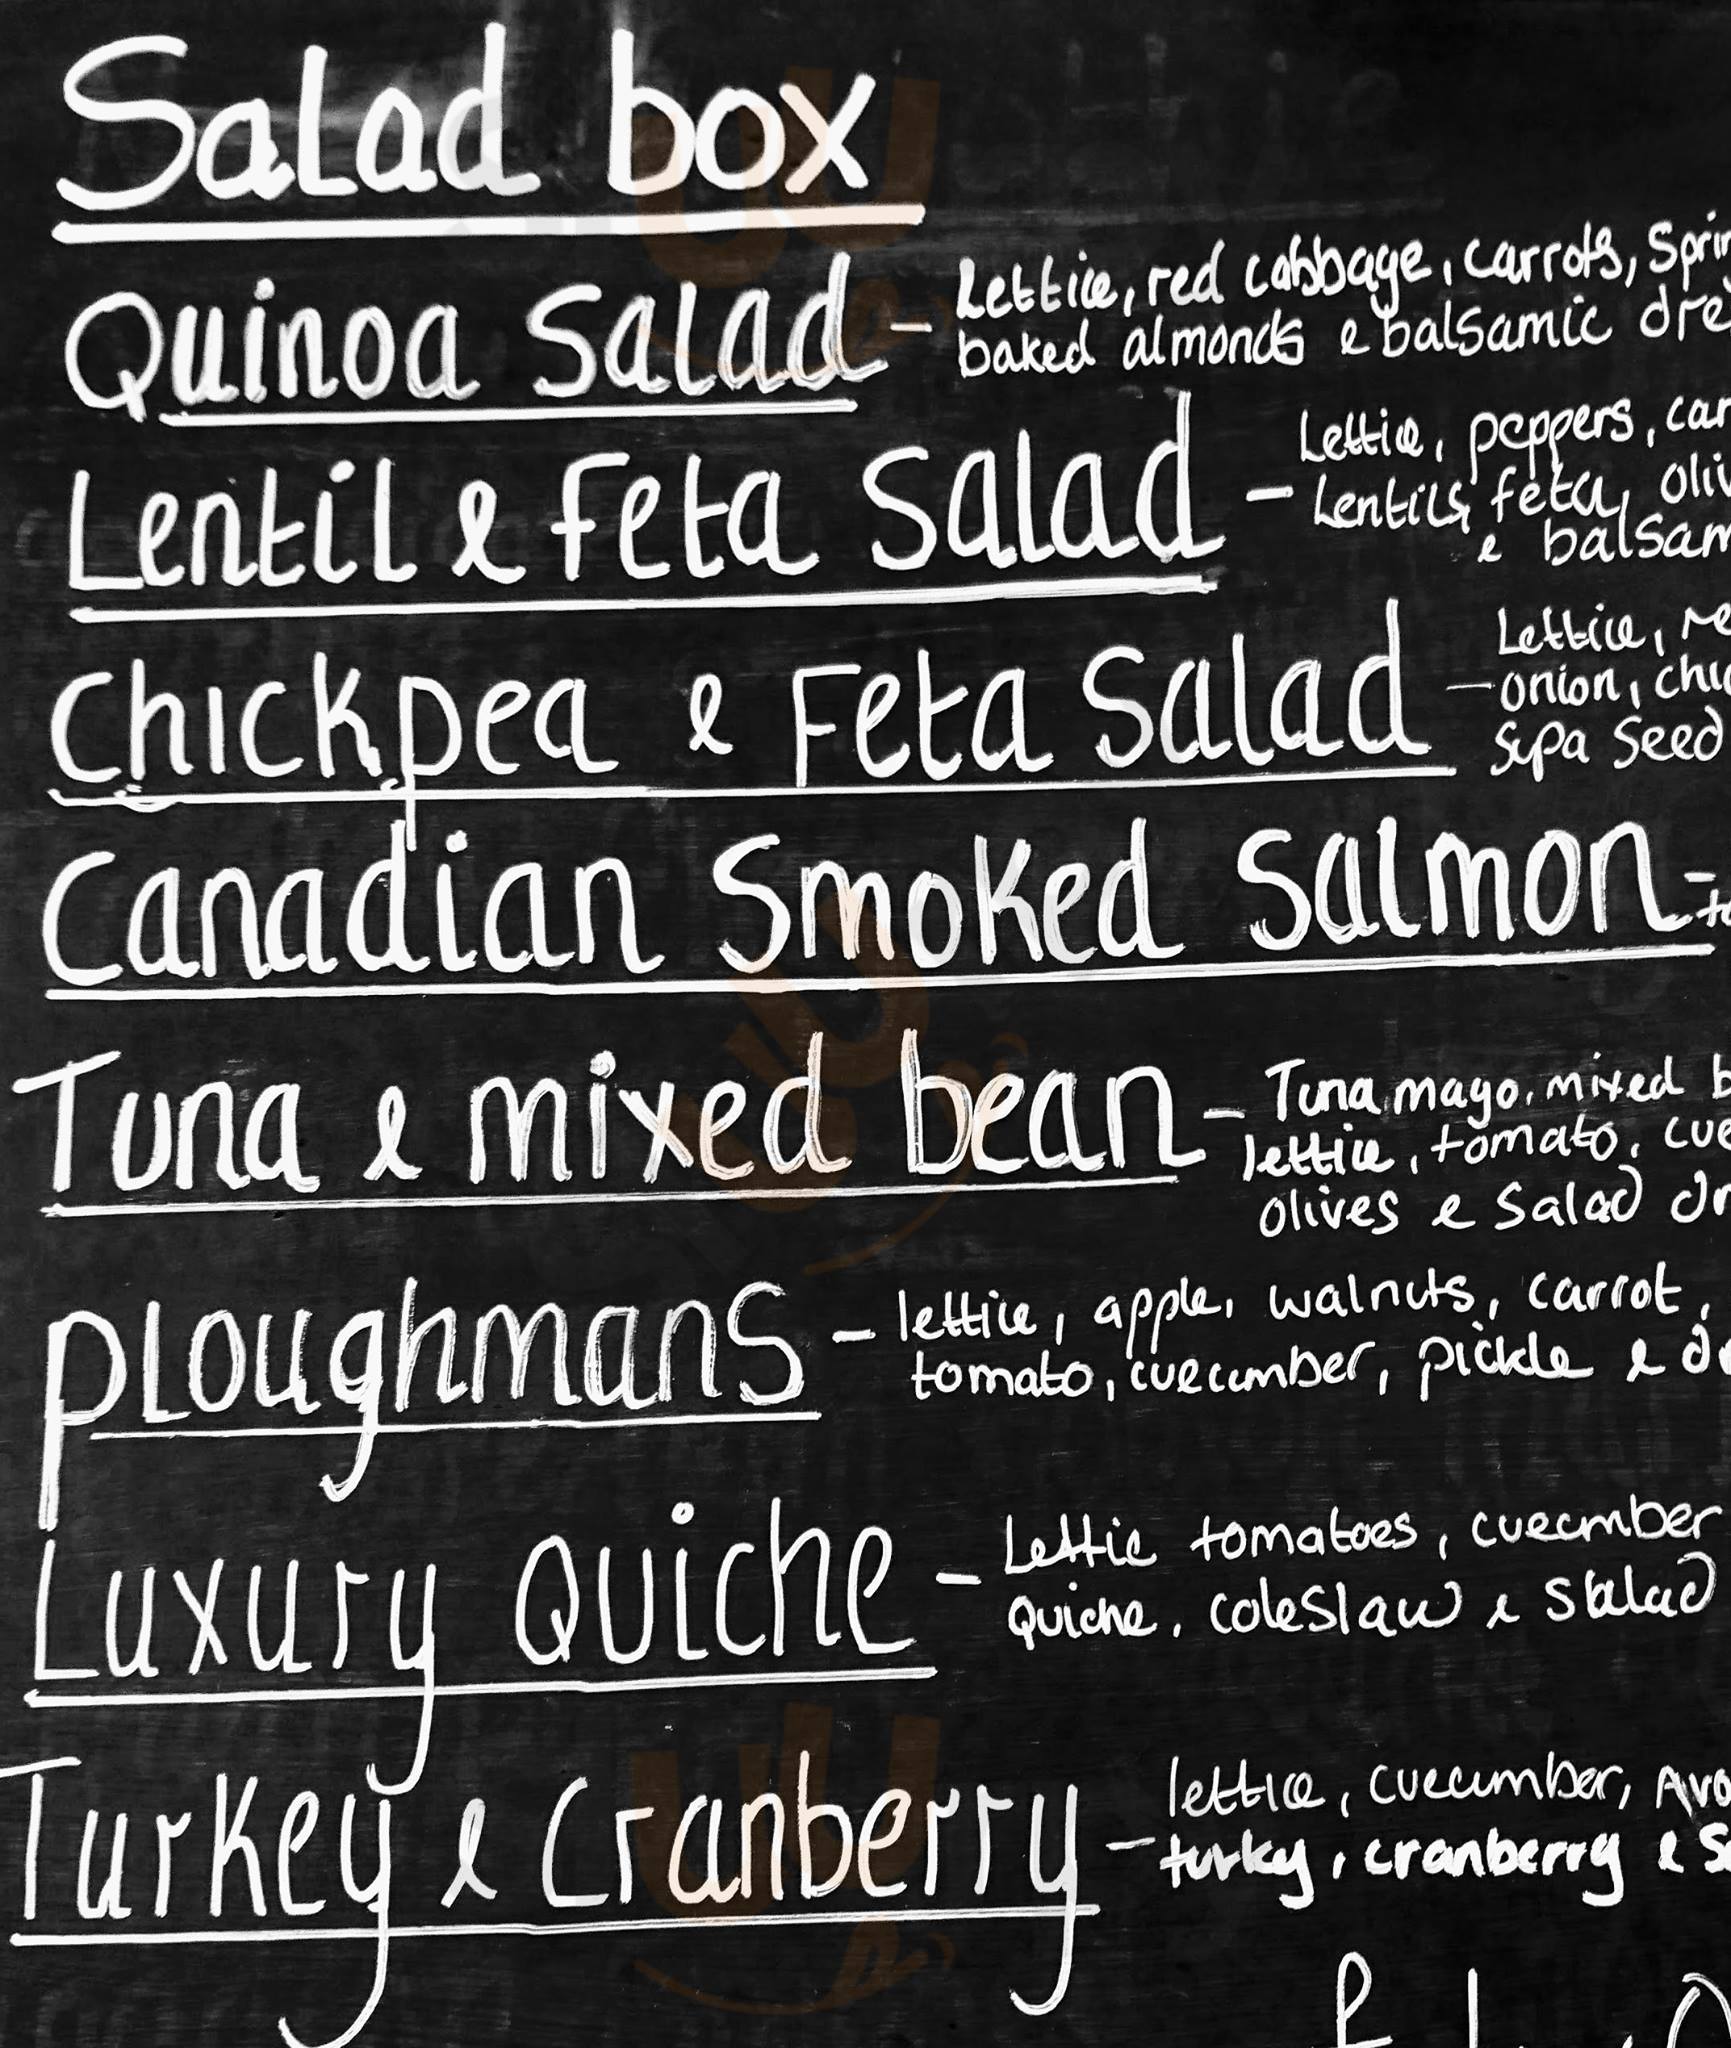 Salad box
Quinoa Salad - Lettice, red cabbage, carrots, Sprin
baked almonds & balsamic dre
Lentil & feta Salad - Lettice, peppers, car
Lentils, feta, oliv
& balsam
Chickpea & Feta Salad - Lettice, re
onion, chic
Supa Seed
Canadian Smoked Salmon -
to
Tuna & mixed bean - Tuna mayo, mixed b
lettice, tomato, cuc
olives & Salad dr
Ploughmans - lettice, apple, walnuts, carrot,
tomato, cuecumber, pickle & dr
Luxury Quiche - Lettic tomatoes, cuecmber
Quiche, coleslaw & Salad
Turkey & Cranberry - lettice, cuecumber, Avo
turky, cranberry & S